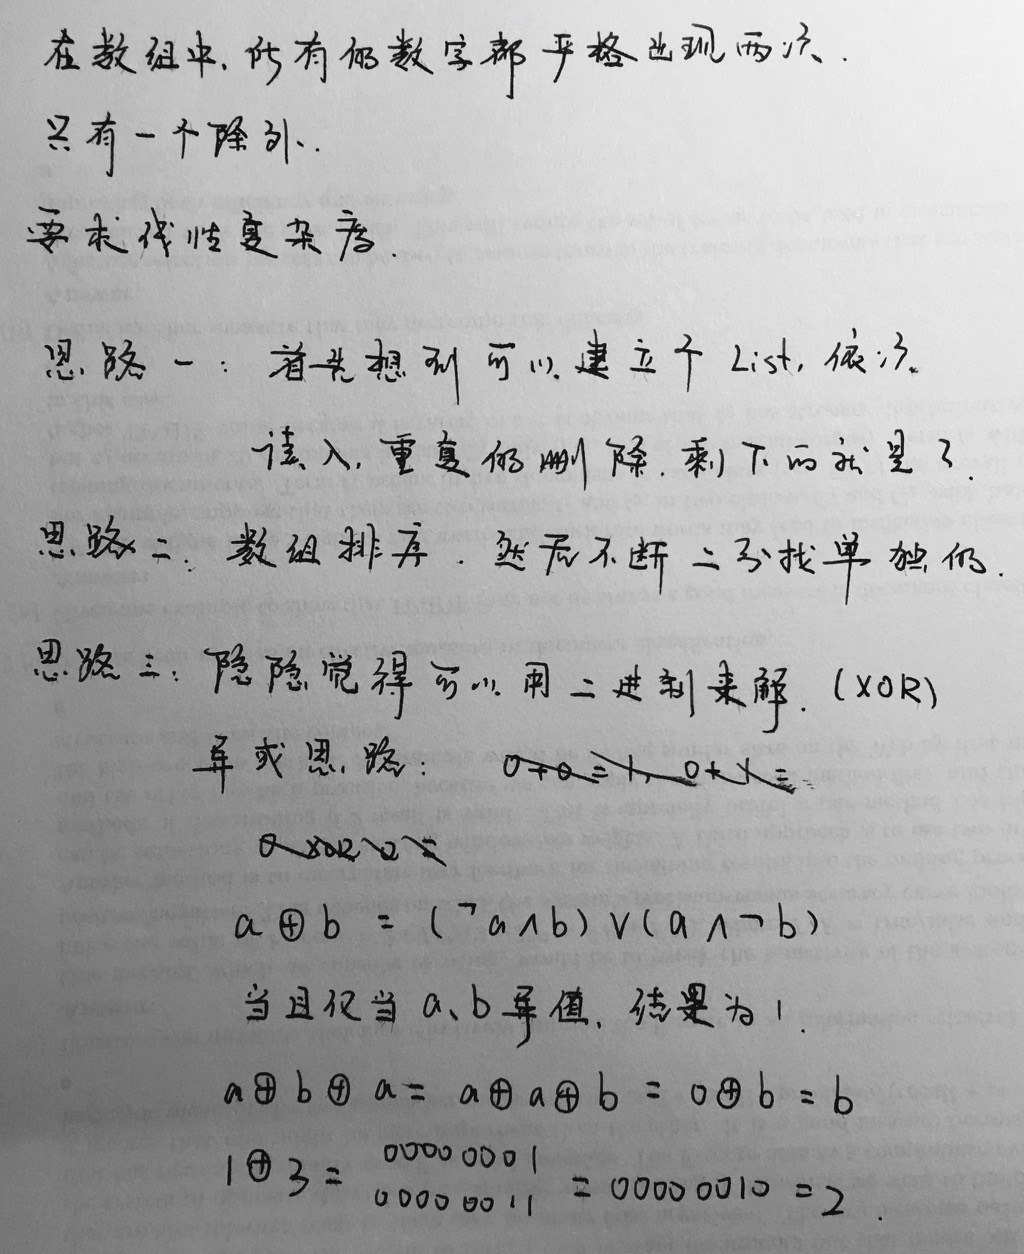 在数组中,所有的数字都严格出现两次.
只有一个除外.
要求线性复杂度.
思路一: 首先想到可以建立个 List, 依次
读入,重复的删除.剩下的就是了
思路二: 数组排序.然后不断二分找单独的.
思路三: 隐隐觉得可以用二进制来解. (XOR)
异或思路: 0+0=1, 0+1=
0 XOR 0 =
a⊕b = (¬a∧b)∨(a∧¬b)
当且仅当 a、b 异值, 结果为1.
a⊕b⊕a = a⊕a⊕b = 0⊕b = b
1⊕3 = 00000001
00000011 = 00000010 = 2.